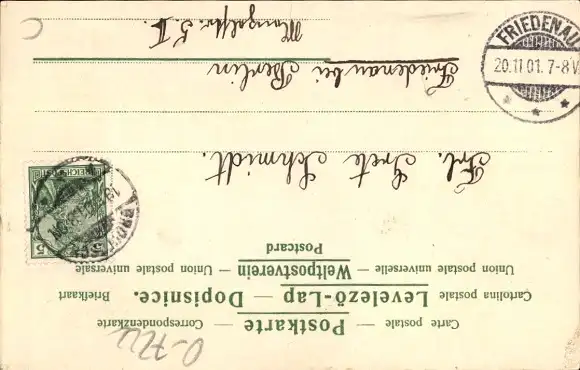 Carte postale — Postkarte — Correspondenzkarte
Cartolina postale Levelező-Lap — Dopisnice. Briefkaart
Union postale universelle — Weltpostverein — Union postale universale
Postcard
Frl. Grete Schmidt.
Friedenau bei Berlin
5 REICHSPOST 5
FRIEDENAU
20.11.01. 7-8V.